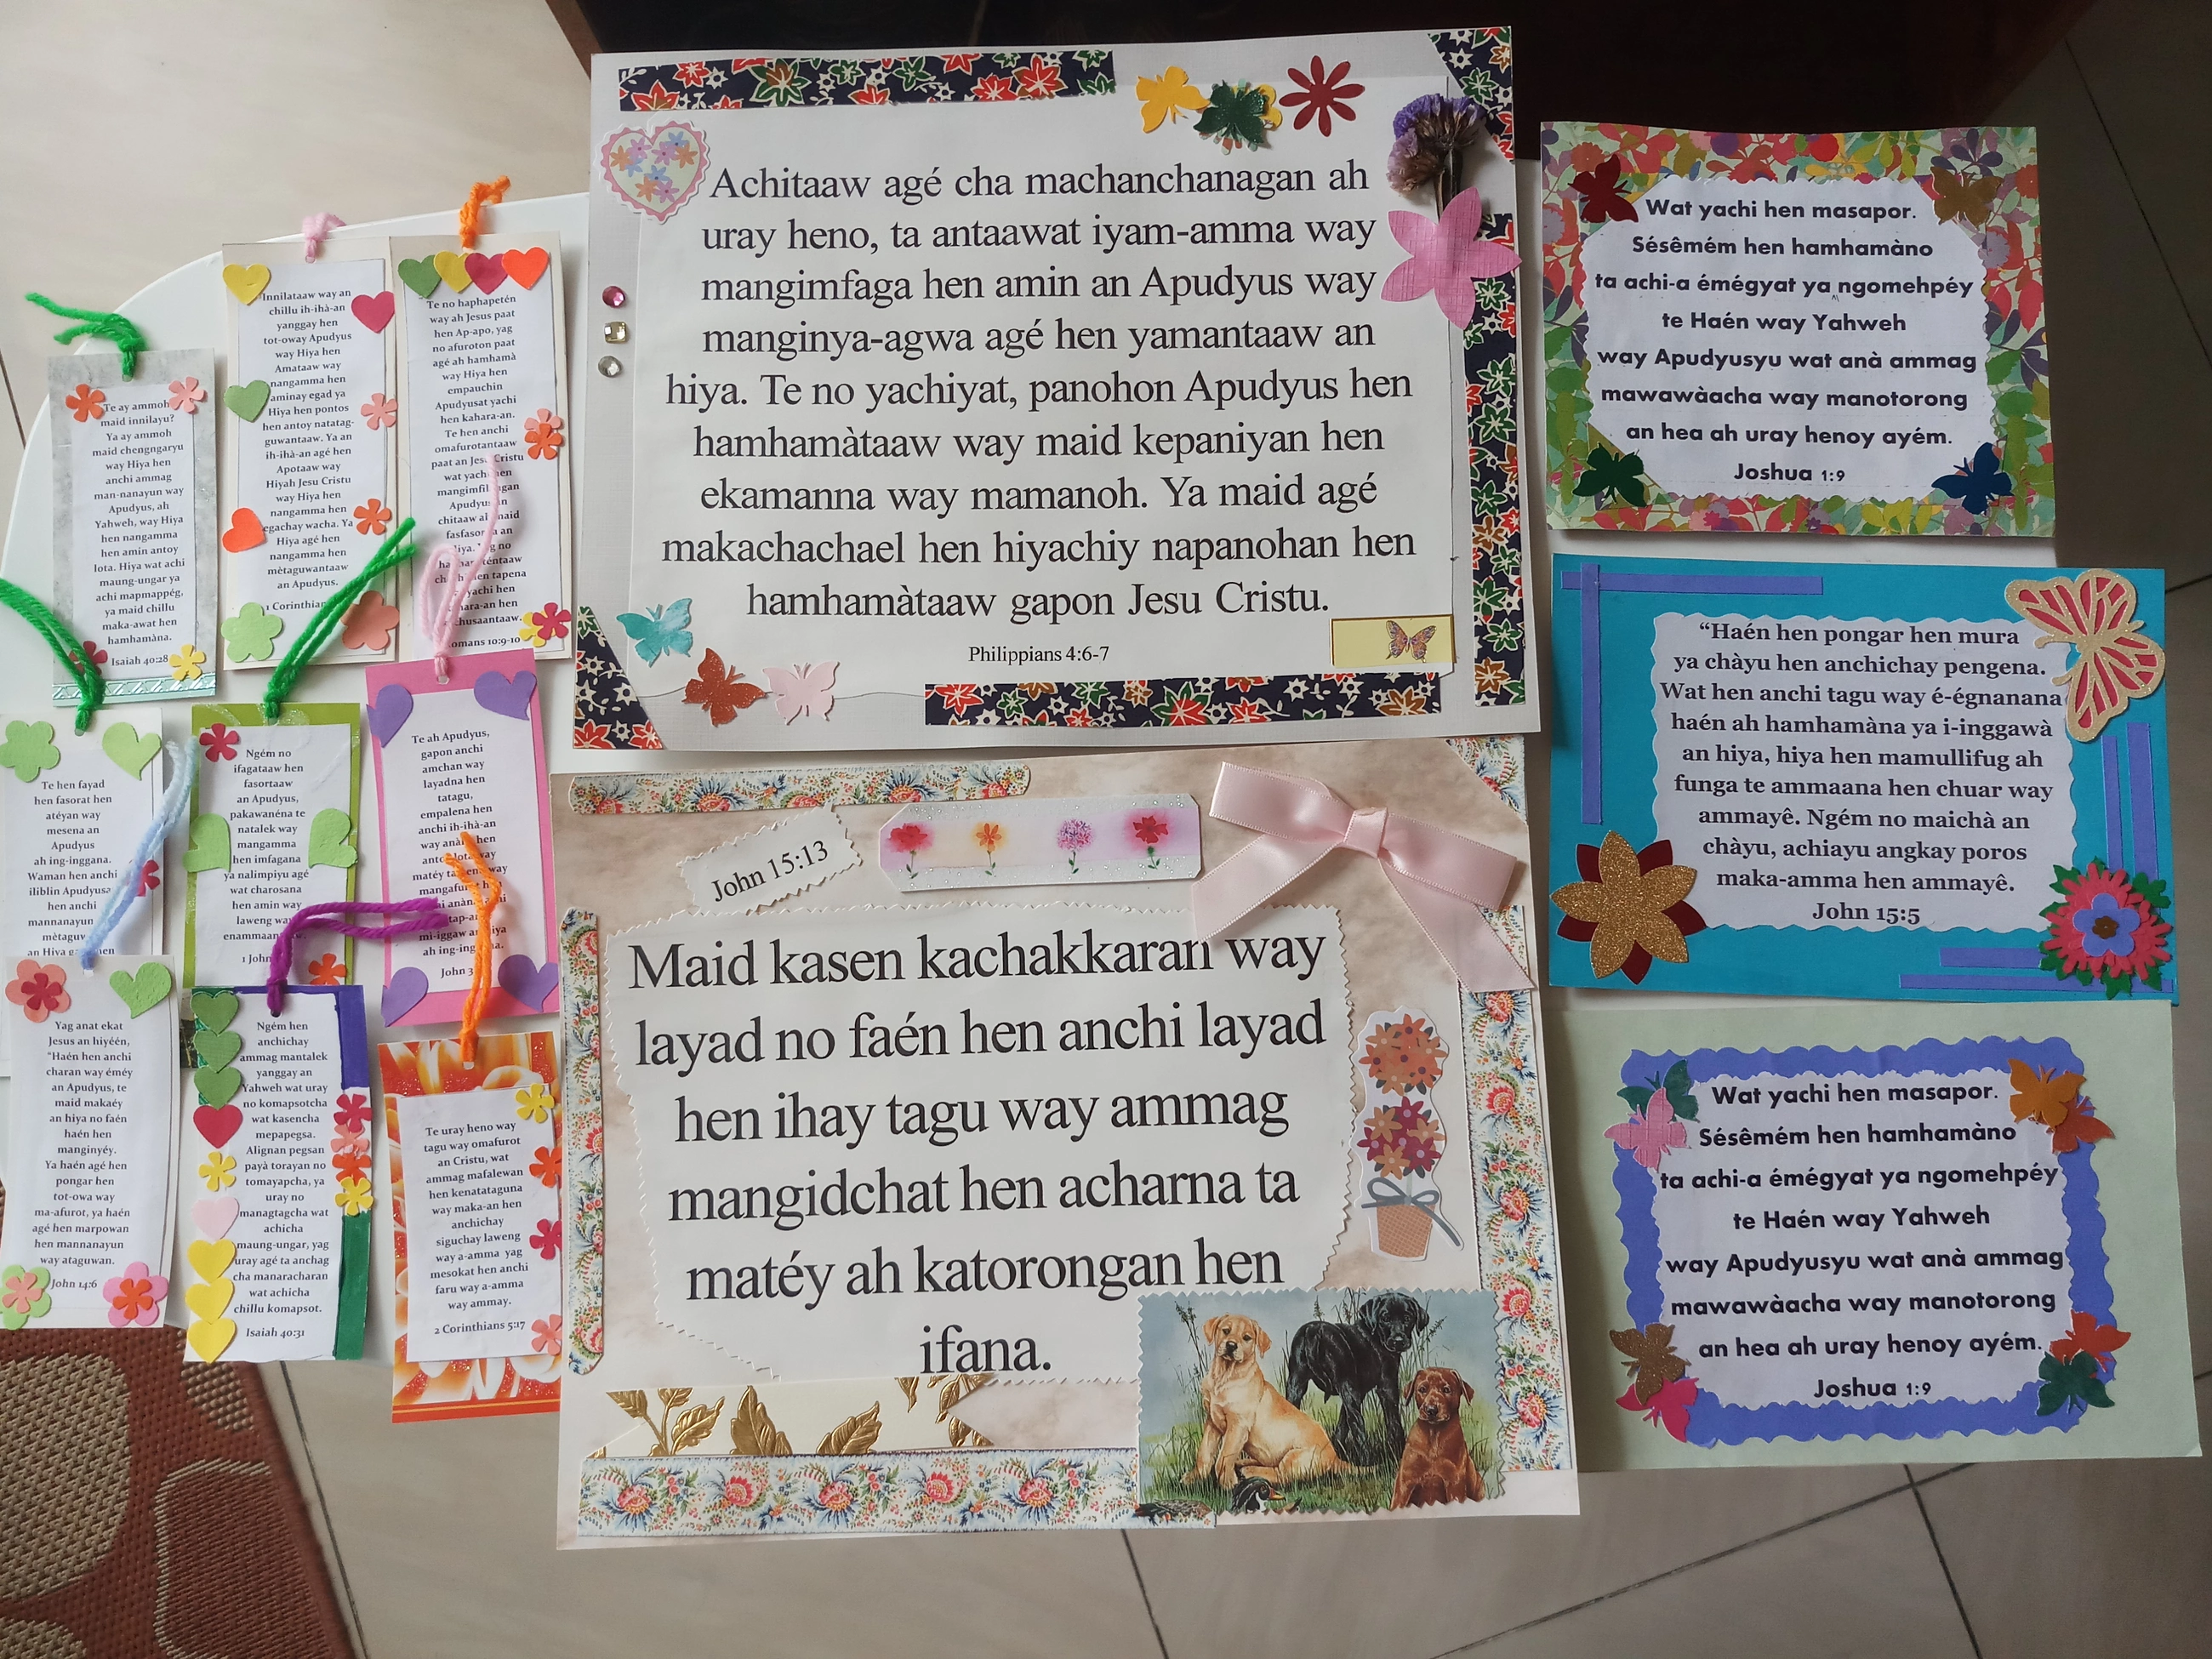 Te ay ammoh
maid innilayu?
Ya ay ammoh
maid chengngaryu
way Hiya hen
anchi ammag
man-nanayun way
Apudyus, ah
Yahweh, way Hiya
hen nangamma
hen amin antoy
lota. Hiya wat achi
maung-ungar ya
achi mapmappég,
ya maid chillu
maka-awat hen
hamhamàna.
Isaiah 40:28
Innilataaw way an
chillu ih-ihà-an
yanggay hen
tot-oway Apudyus
way Hiya hen
Amataaw way
nangamma hen
aminay egad ya
Hiya hen pontos
hen antoy natatag-
guwantaaw. Ya an
ih-ihà-an agé hen
Apotaaw way
Hiyah Jesu Cristu
way Hiya hen
nangamma hen
egachay wacha. Ya
Hiya agé hen
nangamma hen
mètaguwantaaw
an Apudyus.
1 Corinthian
Te no haphapetén
way ah Jesus paat
hen Ap-apo, yag
no afuroton paat
agé ah hamhamà
way Hiya hen
empauchin
Apudyusat yachi
hen kahara-an.
Te hen anchi
omafurotantaaw
paat an Jesu Cristu
wat yachi hen
Apudyus
maid
no
hen tapena
yachi hen
hen
Romans 10:9-10
Te hen fayad
hen fasorat hen
atéyan way
mesena an
Apudyus
ah ing-inggana.
Waman hen anchi
iliblin Apudyusa
hen anchi
mannanayun
an Hiya
Ngém no
ifagataaw hen
fasortaaw
an Apudyus,
pakawanéna te
natalek way
mangamma
hen imfagana
ya nalimpiyu agé
wat charosana
hen amin way
laweng
1 John
Te ah Apudyus,
gapon anchi
amchan way
layadna hen
tatagu,
empalena hen
anchi ih-ihà-an
way hen
way
ah
John 3
Yag anat ekat
Jesus an hiyéén,
“Haén hen anchi
charan way éméy
an Apudyus, te
maid makaéy
an hiya no faén
haén hen
manginyéy.
Ya haén agé hen
pongar hen
tot-owa way
ma-afurot, ya haén
agé hen marpowan
hen mannanayun
way ataguwan.
John 14:6
Ngém hen
anchichay
ammag mantalek
yanggay an
Yahweh wat uray
no komapsotcha
wat kasencha
mepapegsa.
Alignan pegsan
payà torayan no
tomayapcha, ya
uray no
managtagcha wat
achicha
maung-ungar, yag
uray agé ta anchag
cha manaracharan
wat achicha
chillu komapsot.
Isaiah 40:31
Te uray heno way
tagu way omafurot
an Cristu, wat
ammag mafalewan
hen kenatataguna
way maka-an hen
anchichay
siguchay laweng
way a-amma yag
mesokat hen anchi
faru way a-amma
way ammay.
2 Corinthians 5:17
Achitaaw agé cha machanchanagan ah
uray heno, ta antaawat iyam-amma way
mangimfaga hen amin an Apudyus way
manginya-agwa agé hen yamantaaw an
hiya. Te no yachiyat, panohon Apudyus hen
hamhamàtaaw way maid kepaniyan hen
ekamanna way mamanoh. Ya maid agé
makachachael hen hiyachiy napanohan hen
hamhamàtaaw gapon Jesu Cristu.
Philippians 4:6-7
John 15:13
Maid kasen kachakkaran way
layad no faén hen anchi layad
hen ihay tagu way ammag
mangidchat hen acharna ta
matéy ah katorongan hen
ifana.
Wat yachi hen masapor.
Sésêmém hen hamhamàno
ta achi-a émégyat ya ngomehpéy
te Haén way Yahweh
way Apudyusyu wat anà ammag
mawawàacha way manotorong
an hea ah uray henoy ayém.
Joshua 1:9
“Haén hen pongar hen mura
ya chàyu hen anchichay pengena.
Wat hen anchi tagu way é-égnanana
haén ah hamhamàna ya i-inggawà
an hiya, hiya hen mamullifug ah
funga te ammaana hen chuar way
ammayê. Ngém no maichà an
chàyu, achiayu angkay poros
maka-amma hen ammayê.
John 15:5
Wat yachi hen masapor.
Sésêmém hen hamhamàno
ta achi-a émégyat ya ngomehpéy
te Haén way Yahweh
way Apudyusyu wat anà ammag
mawawàacha way manotorong
an hea ah uray henoy ayém.
Joshua 1:9